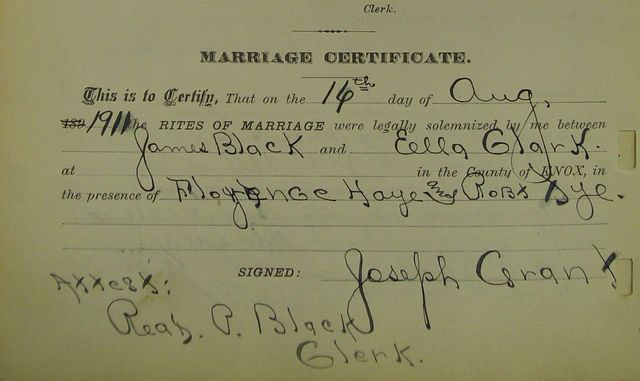 Clerk.
MARRIAGE CERTIFICATE.
This is to Certify, That on the 16th day of Aug,
189 1911 the RITES OF MARRIAGE were legally solemnized by me between
James Black and Eella Clark.
at in the County of KNOX, in
the presence of Florence Haye and Robt Dye.
SIGNED: Joseph Grant
Attest:
P. Black
Clerk.